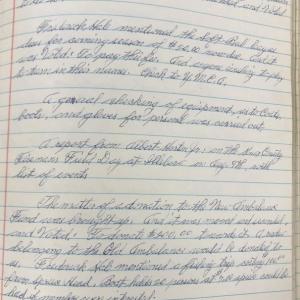 and Voted
Frederick Heb mentioned the Soft Ball League
dues for coming season of $20.00 was due. And it
was Voted: To pay this fee. And anyone wishing to play
to turn in their name. Check to Y.M.C.A.
A general checking of equipment, as to Coats,
boots, and gloves for personnel was carried out.
A report from Albert Hester Jr. on the County
Firemen's Field Day at in Aug. 7th, with
list of events
The matter of donation to the New Ambulance
Fund was brought up. And it was moved and seconded,
and Voted: To donate $200.00 towards it. A radio
belonging to the Old Ambulance would be donated to
us. Frederick Heb mentioned a fishing trip with
from Boat holds 20 persons at spirit could be
had if number was interested.